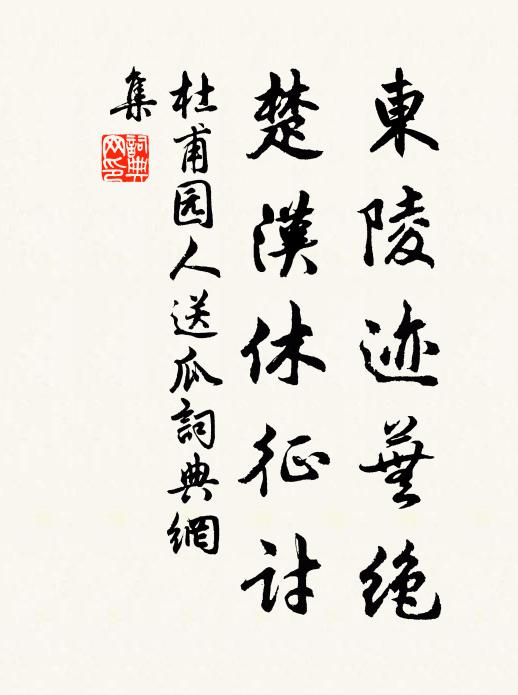 東陵迹蕪絶
楚漢休征討
杜甫园人送瓜詞典網
集
詞典網印